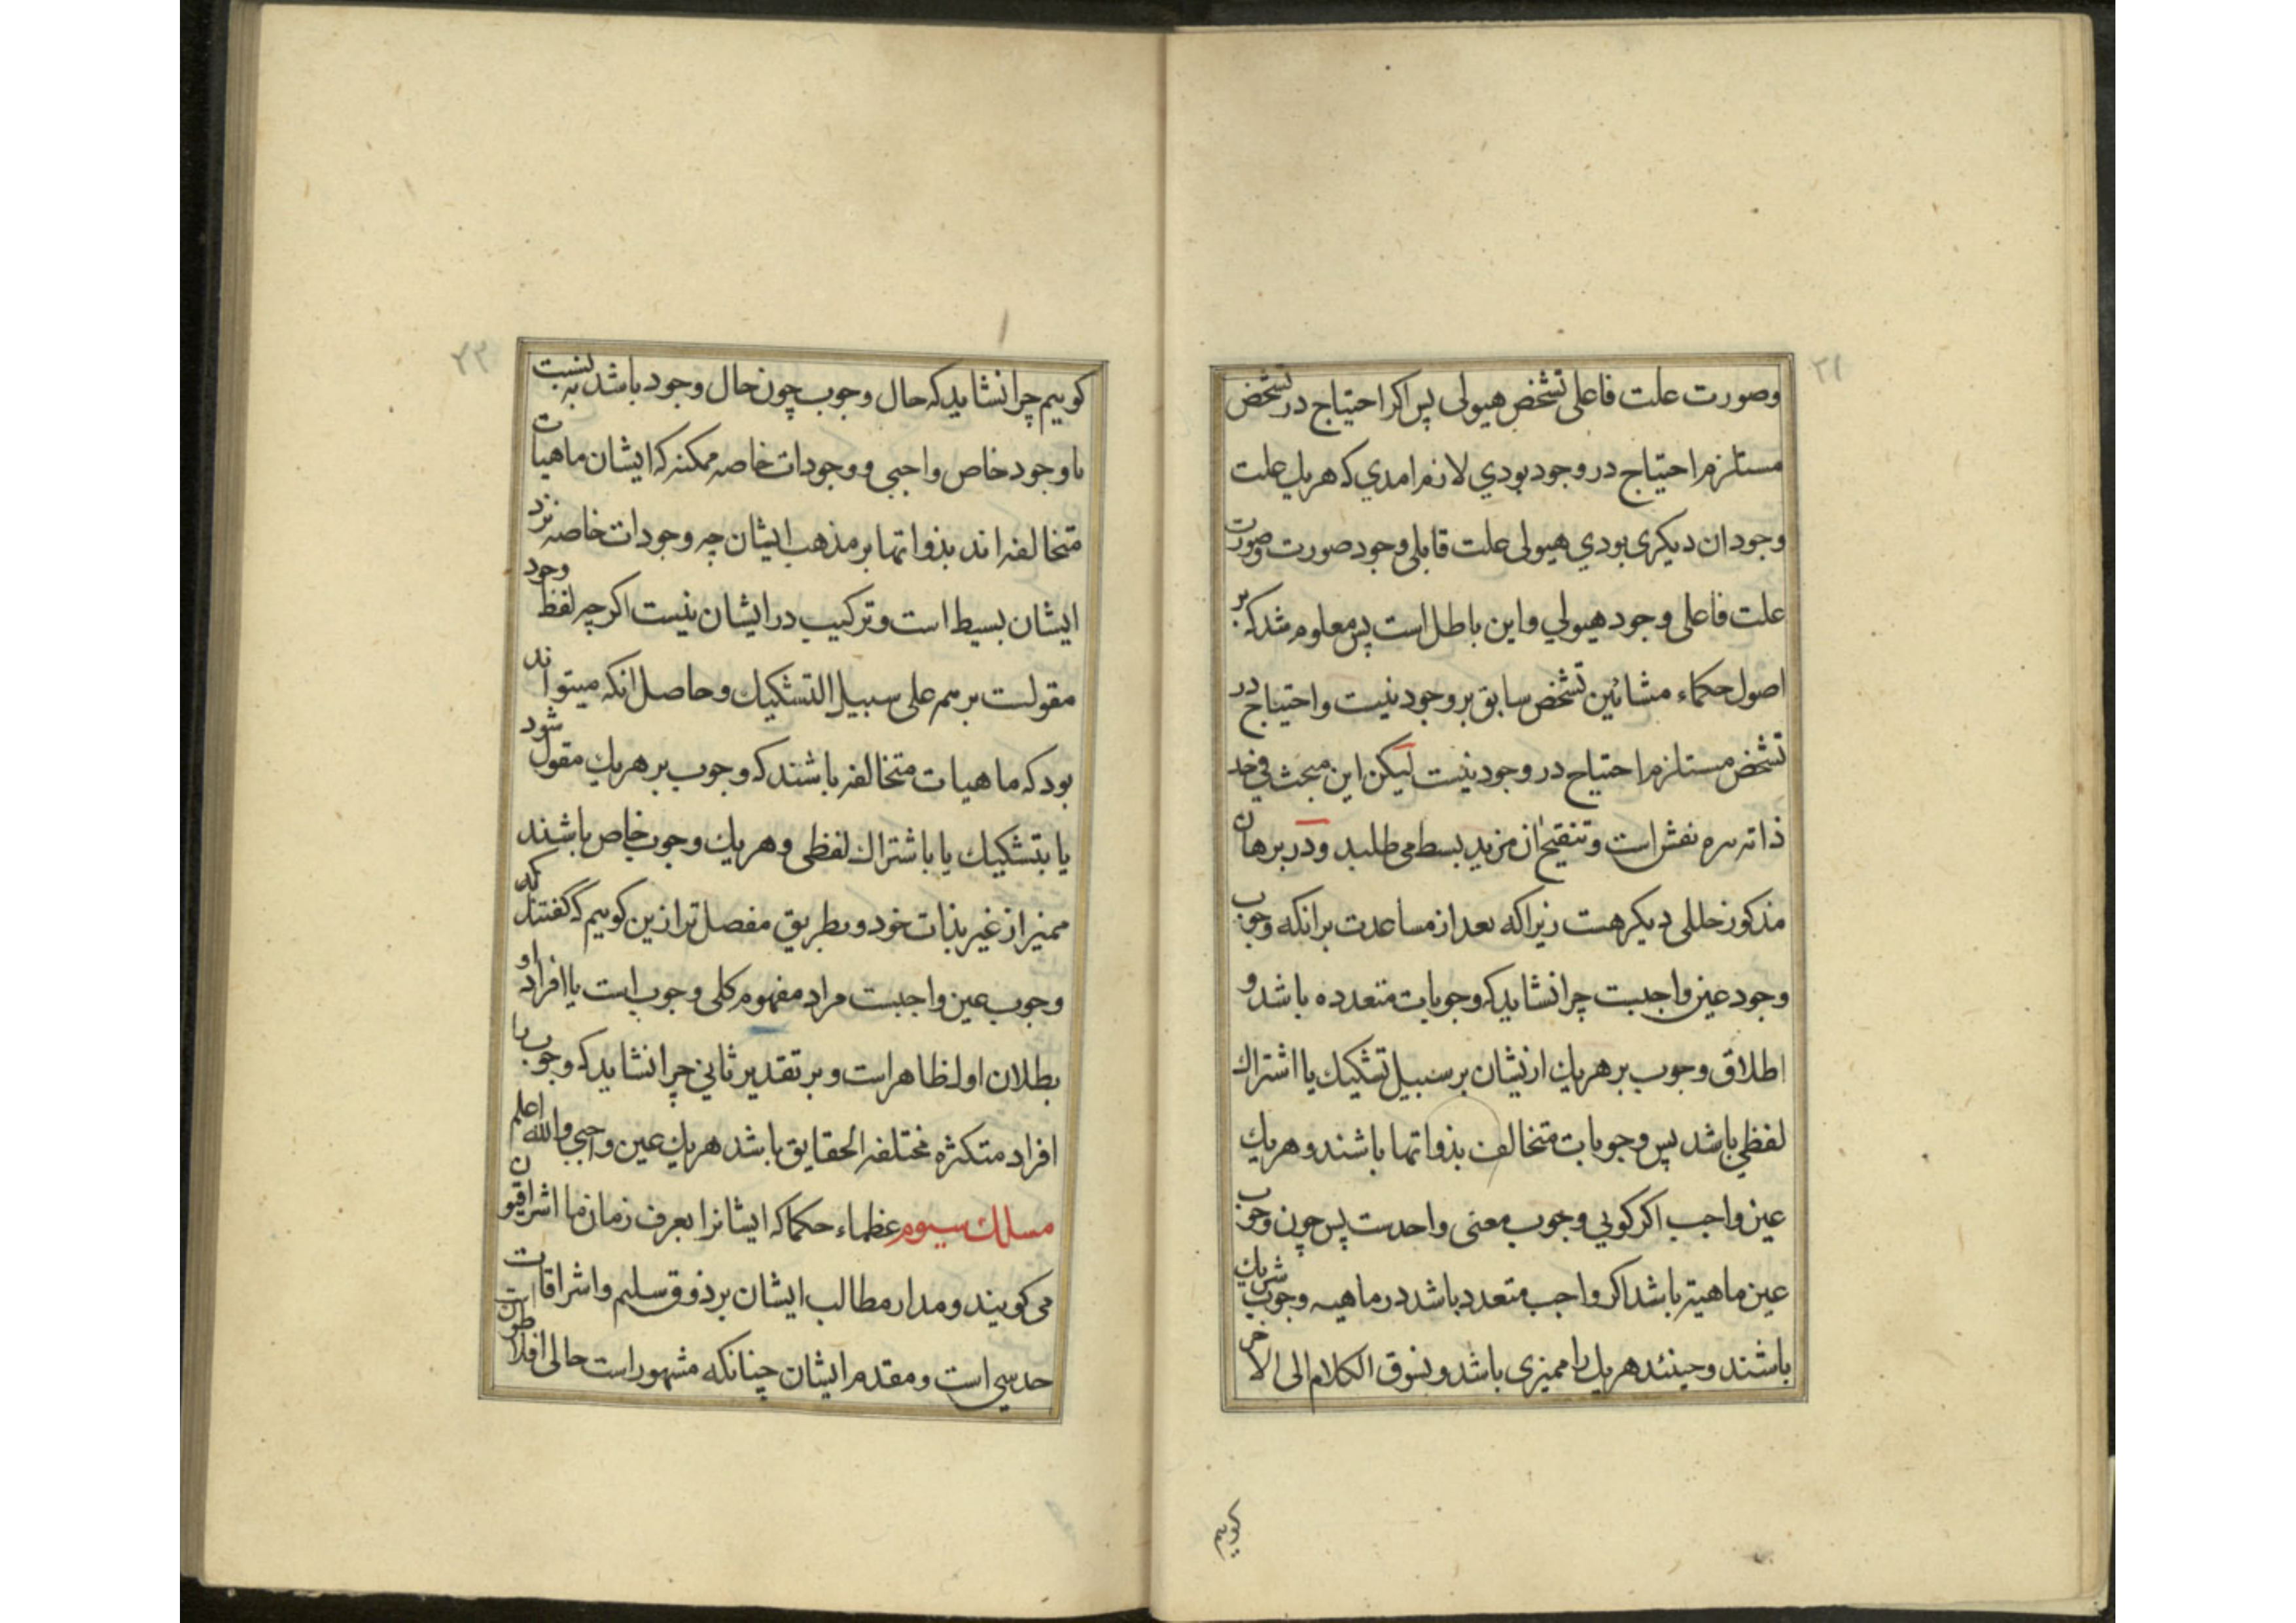 ٢١
وصورت علت فاعلی تشخص هیولی پس اکر احتیاج در تشخص
مستلزم احتیاج در وجود بودی لازم امدی که هریك علت
وجود ان دیکری بودی هیولی علت قابلی وجود صورت وصورت
علت فاعلی وجود هیولی واین باطل است پس معلوم شد که بر
اصول حکماء مشائین تشخص سابق بر وجود نیست واحتیاج در
تشخص مستلزم احتیاج در وجود نیست لیکن این مبحث فی حد
ذاته نفش است وتنقیح ان مزید بسط می طلبد ودر برهان
مذکور خللی دیکر هست زیراکه بعد از مساعدت برانکه وجوب
وجود عین واجبست چرا نشاید که وجوبات متعدده باشد و
اطلاق وجوب بر هریك ازیشان بر سبیل تشکیك یا اشتراك
لفظی باشد پس وجوبات متخالف بذواتها باشند وهریك
عین واجب اکر کویی وجوب معنی واحدست پس چون وجوب
عین ماهیة باشد اکر واجب متعدد باشد در ماهیه وجوب شریك
باشند وحینئذ هریك را ممیزی باشد ونسوق الکلام الی الاخر
کوییم
٢٢
کوییم چرا نشاید که حال وجوب چون حال وجود باشد به نسبت
با وجود خاص واجبی ووجودات خاصه ممکنه که ایشان ماهیات
متخالفه اند بذواتها بر مذهب ایشان چه وجودات خاصه نزد
ایشان بسیط است وترکیب در ایشان نیست اکرچه لفظ وجود
مقولست بر هم علی سبیل التشکیك وحاصل انکه میتواند
بود که ماهیات متخالفه باشند که وجوب بر هریك مقول شود
یا بتشکیك یا باشتراك لفظی وهریك وجوب خاص باشند
ممیز از غیر بذات خود وبطریق مفصل تر ازین کوییم که کفتند که
وجوب عین واجبست مراد مفهوم کلی وجوب است یا افراد او
بطلان اول ظاهر است وبر تقدیر ثانی چرا نشاید که وجوب را
افراد متکثره مختلفه الحقایق باشد هریك عین واجبی والله اعلم
مسلك سیوم عظماء حکما که ایشانرا بعرف زمان ما اشراقیون
می کویند ومدار مطالب ایشان بر ذوق سلیم واشراقات
حدسی است ومقدم ایشان چنانکه مشهور است حالی افلاطون است